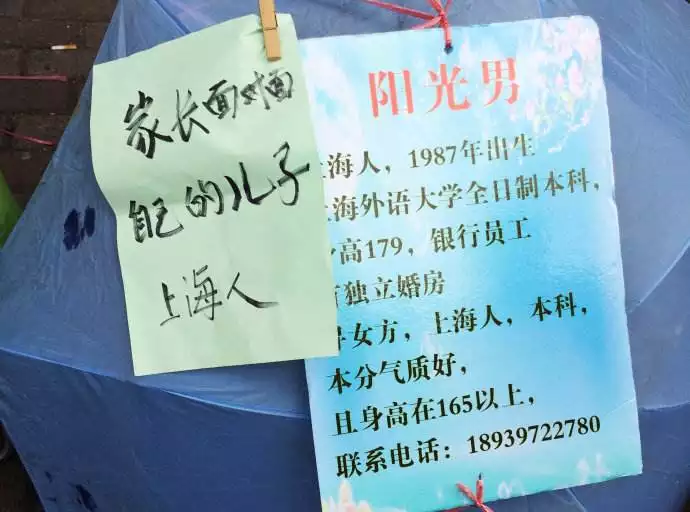 家长面对面
自己的儿子
上海人
阳光男
上海人，1987年出生
上海外语大学全日制本科，
身高179，银行员工
有独立婚房
寻女方，上海人，本科，
本分气质好，
且身高在165以上，
联系电话：18939722780